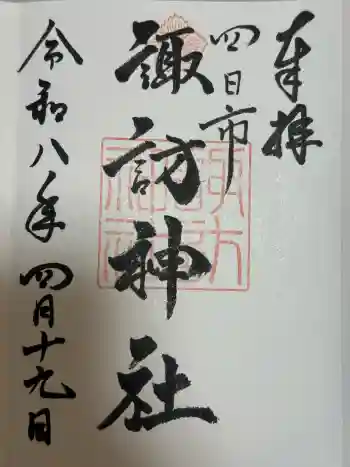 奉拝
四日市
諏訪神社
令和八年四月十九日